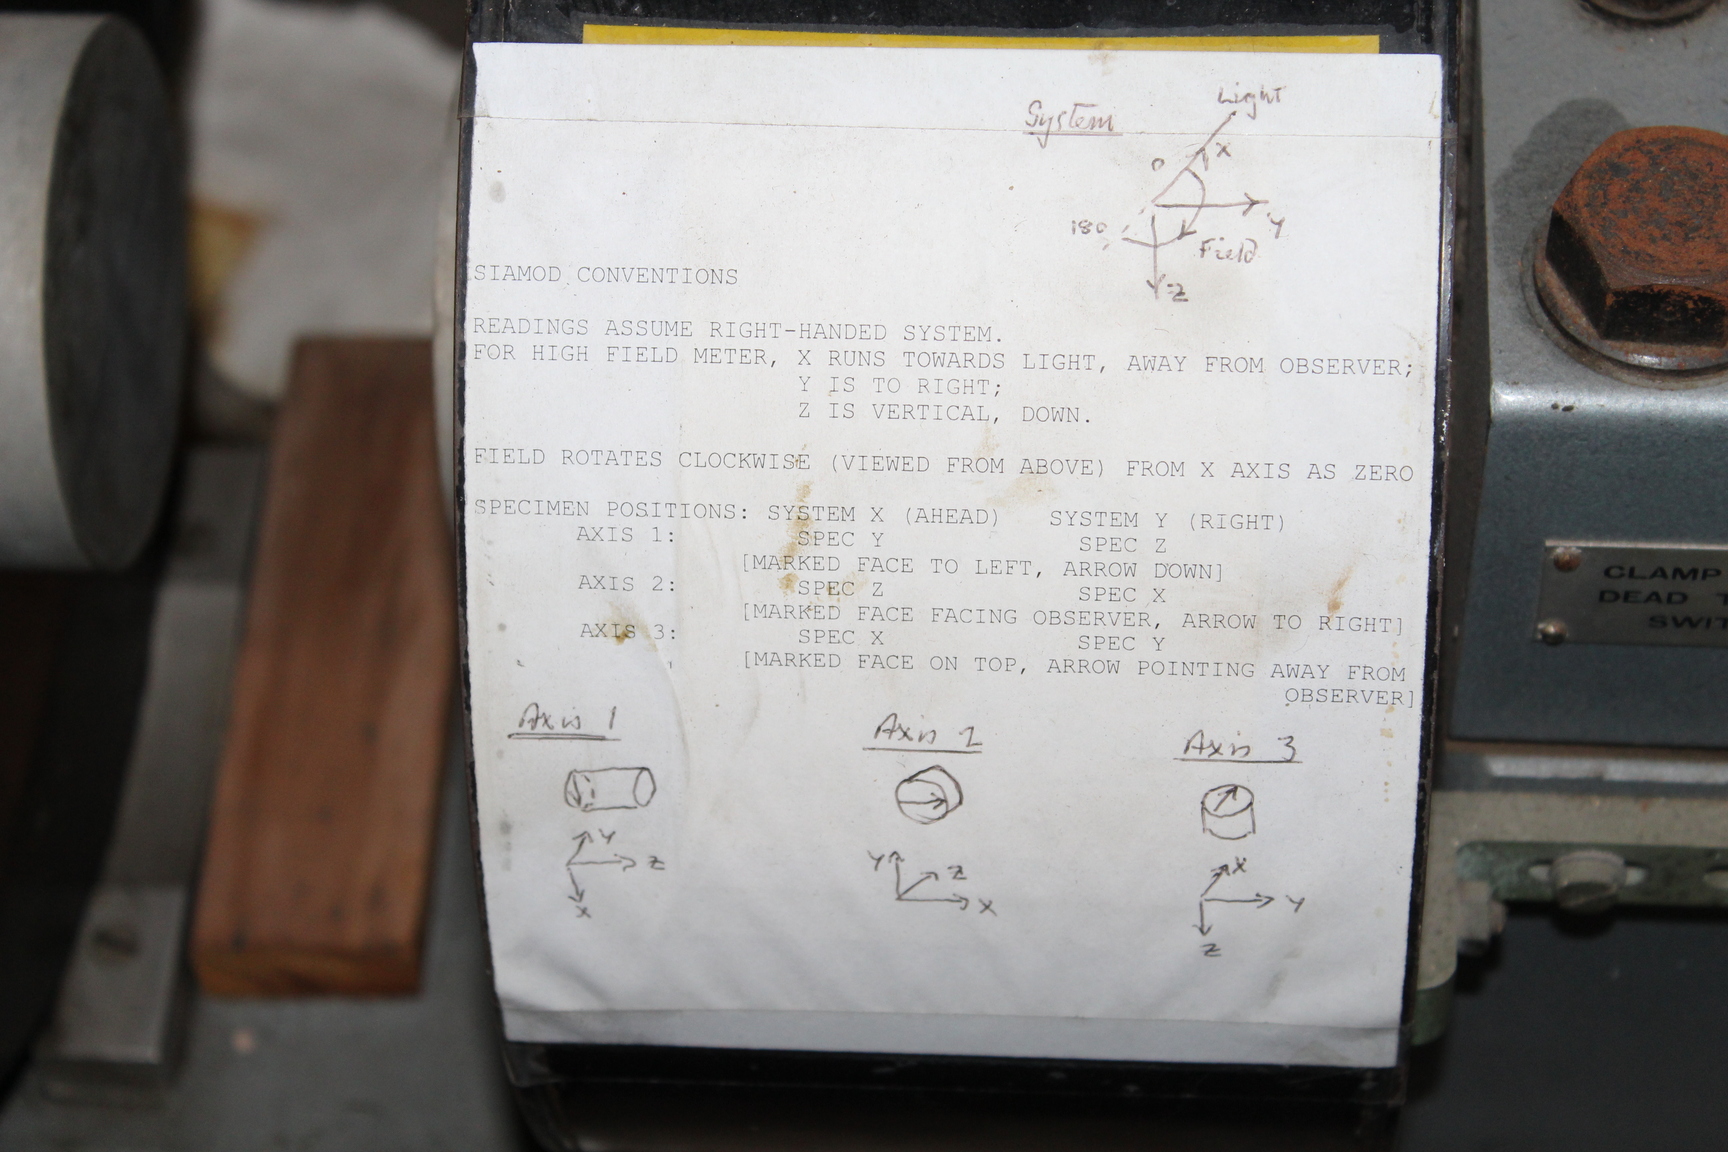 Light
System
X
0
Y
180
Field
Z
SIAMOD CONVENTIONS
READINGS ASSUME RIGHT-HANDED SYSTEM.
FOR HIGH FIELD METER, X RUNS TOWARDS LIGHT, AWAY FROM OBSERVER;
Y IS TO RIGHT;
Z IS VERTICAL, DOWN.
FIELD ROTATES CLOCKWISE (VIEWED FROM ABOVE) FROM X AXIS AS ZERO
SPECIMEN POSITIONS: SYSTEM X (AHEAD) SYSTEM Y (RIGHT)
AXIS 1: SPEC Y SPEC Z
[MARKED FACE TO LEFT, ARROW DOWN]
AXIS 2: SPEC Z SPEC X
[MARKED FACE FACING OBSERVER, ARROW TO RIGHT]
AXIS 3: SPEC X SPEC Y
[MARKED FACE ON TOP, ARROW POINTING AWAY FROM
OBSERVER]
Axis 1
Y
Z
X
Axis 2
Y
Z
X
Axis 3
X
Y
Z
CLAMP
DEAD
SWIT